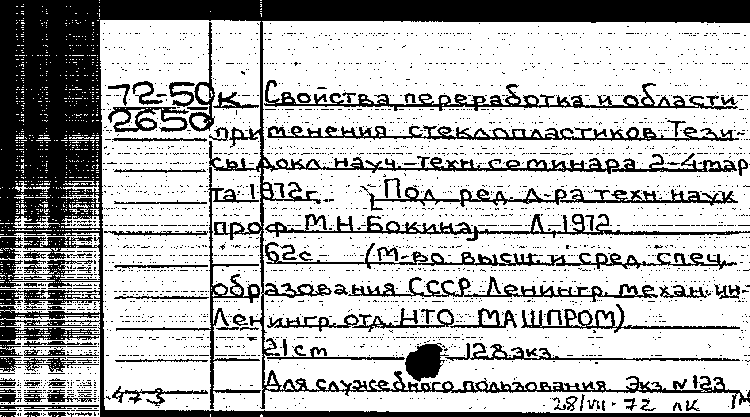 72-50 К Свойства, переработка и области
2650 применения стеклопластиков. Тези-
сы докл. науч.-техн. семинара 2-4 мар
та 1972г. [Под ред. д-ра техн. наук
проф. М.Н. Бокина]. Л., 1972.
62с. (М-во высш. и сред. спец.
образования СССР. Ленингр. механ. ин-
Ленингр. отд. НТО МАШПРОМ)
21 cm 128 экз.
Для служебного пользования Экз. N 123
473 28/VII-72 ЛК